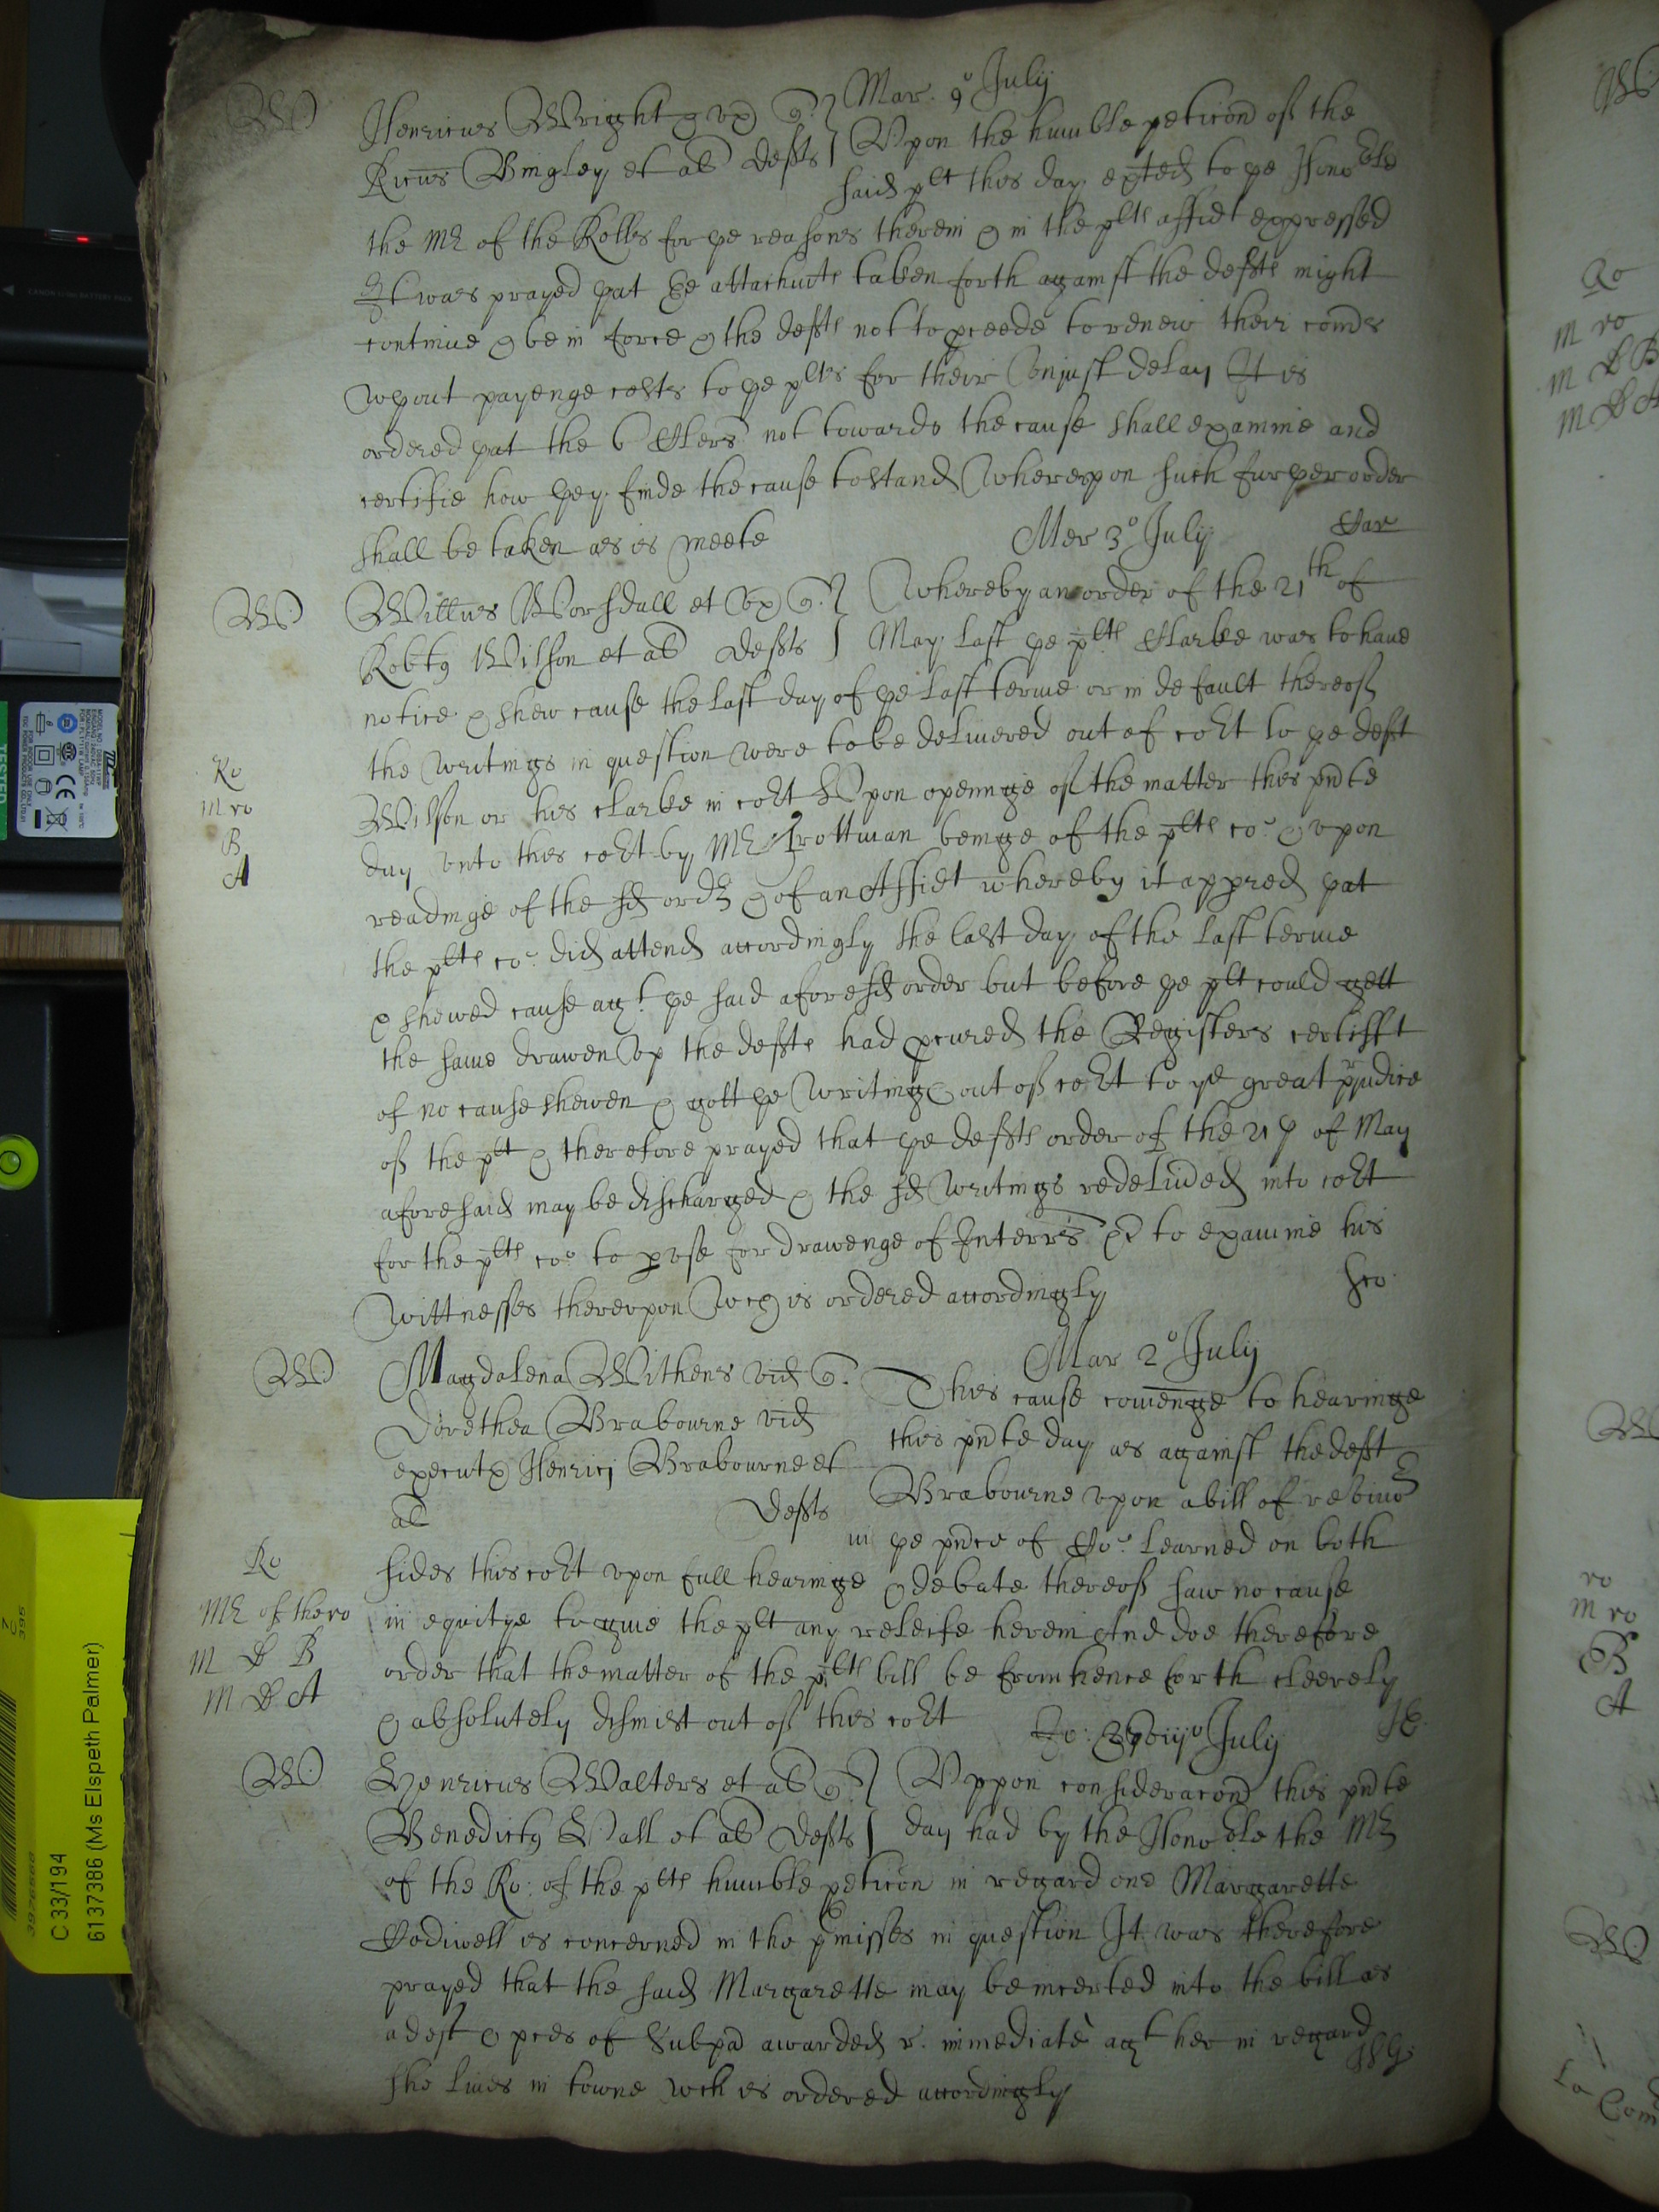 Mar. 9o July
W Henricus Wright & ux q.
Ricus Bingley et al defts
Upon the humble peticon of the
said plt this day exted to ye Honoble
the Mr of the Rolls for ye reasons therein & in the plts affidt expressed
It was prayed yat ye attachmts taken forth against the defts might
continue & be in force & the defts not to pceede to renew their comds
wthout payenge costs to ye plts for their unjust delay It is
ordered yat the 6 Clers not towards the cause shall examine and
certifie how yey finde the cause to stand Whereupon such furyer order
shall be taken as is meete
Mer 3o July
W Willus Worsdall et ux q.
Robtus Wilson et al defts
Whereby an order of the 21th of
May last ye plts Clarke was to have
notice & shew cause the last day of ye last terme or in default thereof
the writings in question were to be delivered out of cort to ye deft
Ro
Wilson or his clarke in cort Upon openinge of the matter this pnte
m ro
day unto this cort by Mr Trottman beinge of the plts co. & upon
B
A
readinge of the sd order & of an Affidt whereby it appred yat
the plts co. did attend accordingly the last day of the last terme
& shewed cause agt. ye said aforesd order but before ye plt could gett
the same drawen up the defts had pcured the Registers certifft
of no cause shewen & gott ye writings out of cort to ye great prjudice
of the plt & therefore prayed that ye defts order of the 21th of May
aforesaid may be discharged & the sd writings redelivded into cort
for the plts co. to pose for drawenge of Interrs & to examine his
wittnesses thereupon Wch is ordered accordingly
Mar 2o July
W Magdalena Withens vid q.
Dorethea Brabourne vid
execut Henrici Brabourne et
al defts
This cause comenge to hearinge
this pnte day as against the deft
Brabourne upon a bill of revivor
in ye pnce of Co. learned on both
Ro
sides this cort upon full hearinge & debate thereof saw no cause
Mr of the ro
in equitye to give the plt any releife herein And doe therefore
M D B
order that the matter of the plts bill be from hence forth cleerely
M D A
& absolutely dismist out of this cort
July
W Henricus Walters et al q.
Benedictus Hall et al defts
Uppon consideracon this pnte
day had by the Honoble the Mr
of the Ro: of the plts humble peticon in regard one Margarette
Codiwell is concerned in the pmisses in question It was therefore
prayed that the said Margarette may be incerted into the bill as
a deft & pces of Subpa awarded r. immediate agt her in regard
she lives in towne wch is ordered accordingly
C 33/194
6137386 (Ms Elspeth Palmer)
TESTED
CANON